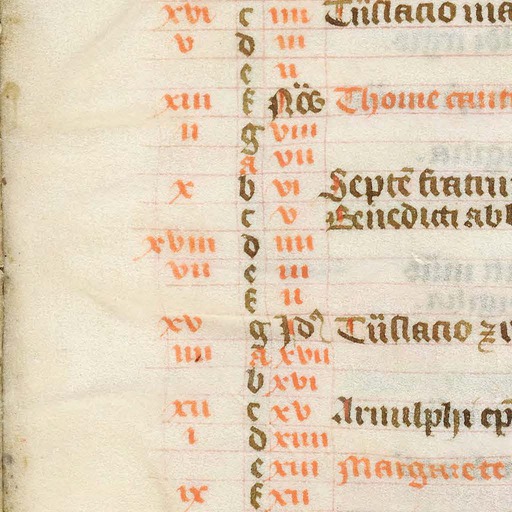 xvi c iiii Tr̃slatio ma
v d iii
e ii
xiii f Noñ Thome
ii g viii
A vii
x b vi Septẽ fratru
c v Benedicti ab
xviii d iiii
vii e iii
f ii
xv g Jdꝰ Tr̃slatio
iiii A xvii
b xvi
xii c xv Arnulphi ep̃
i d xiiii
e xiii Margarete
ix f xii